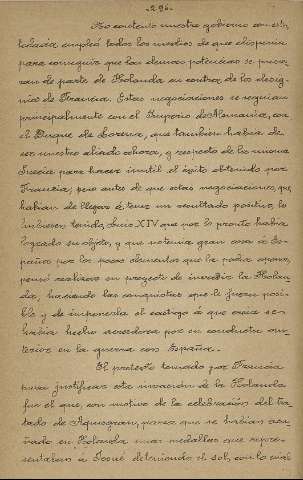 -296-
No contento nuestro gobierno con esto
todavía empleó todos los medios de que disponía
para conseguir que las demas potencias se pusie-
ran de parte de Holanda en contra de los desig-
nios de Francia. Estas negociaciones se seguían
principalmente con el Imperio de Alemania, con
el Duque de Lorena, que tambien había de
ser nuestro aliado ahora, y respecto de la misma
Suecia para hacer inutil el éxito obtenido por
Francia; pero antes de que estas negociaciones, que
habían de llegar á tener un resultado positivo, lo
hubiesen tenido, Luis XIV que por lo pronto había
logrado su objeto, y que no temía gran cosa á Es-
paña por los pocos elementos que la podía oponer,
pensó realizar su proyecto de invadir la Holan-
da, haciendo las conquistas que le fueran posi-
ble y de imponerla el castigo á que creía se
había hecho acreedora por su conducta an-
terior en la guerra con España.
El pretexto tomado por Francia
para justificar esta invasión de la Holanda
fué el que, con motivo de la celebración del tra-
tado de Aquisgran, parece que se habían acu-
ñado en Holanda unas medallas que repre-
sentaban á Josué deteniendo el sol, con lo cual